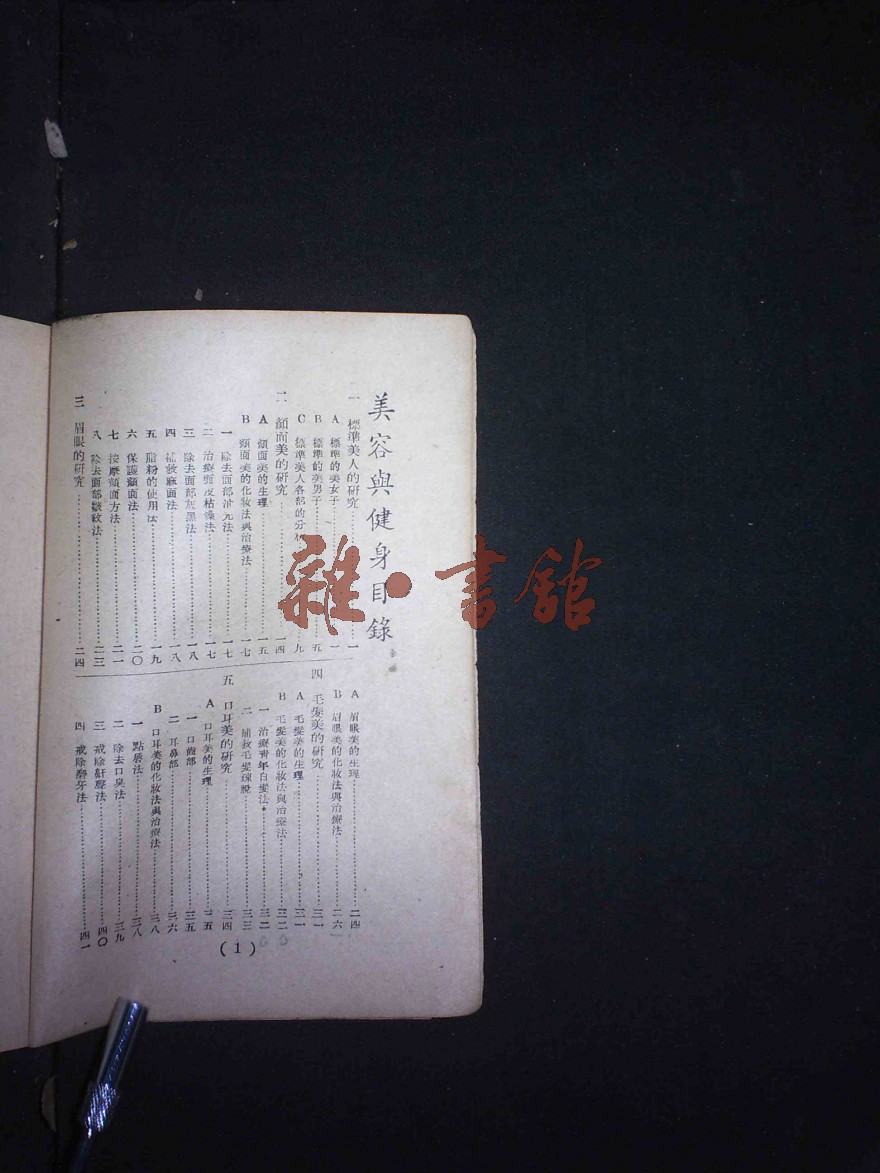 美容與健身目錄
一 標準美人的研究……一
A 標準的美女子……一
B 標準的美男子……五
C 標準美人各部的分析……九
二 顏面美的研究……一四
A 顏面美的生理……一五
B 顏面美的化妝法與治療法……一七
一 除去面部油光法……一七
二 治療頭皮枯燥法……一七
三 除去面部灰黑法……一八
四 補救麻面法……一八
五 脂粉的使用法……一九
六 保護顏面法……二〇
七 按摩顏面方法……二一
八 除去面部皺紋法……二三
三 眉眼的研究……二四
A 眉眼美的生理……二四
B 眉眼美的化妝法與治療法……二六
四 毛髮美的研究……三一
A 毛髮美的生理……三一
B 毛髮美的化妝法與治療法……三二
一 治療青年白髮法……三二
二 補救毛髮疎脫……三三
五 口耳美的研究……三四
A 口耳美的生理……三五
一 口齒部……三五
二 耳鼻部……三六
B 口耳美的化妝法與治療法……三八
一 點唇法……三八
二 除去口臭法……三九
三 戒除鼾聲法……四〇
四 戒除磨牙法……四一
(1)
雜·書館